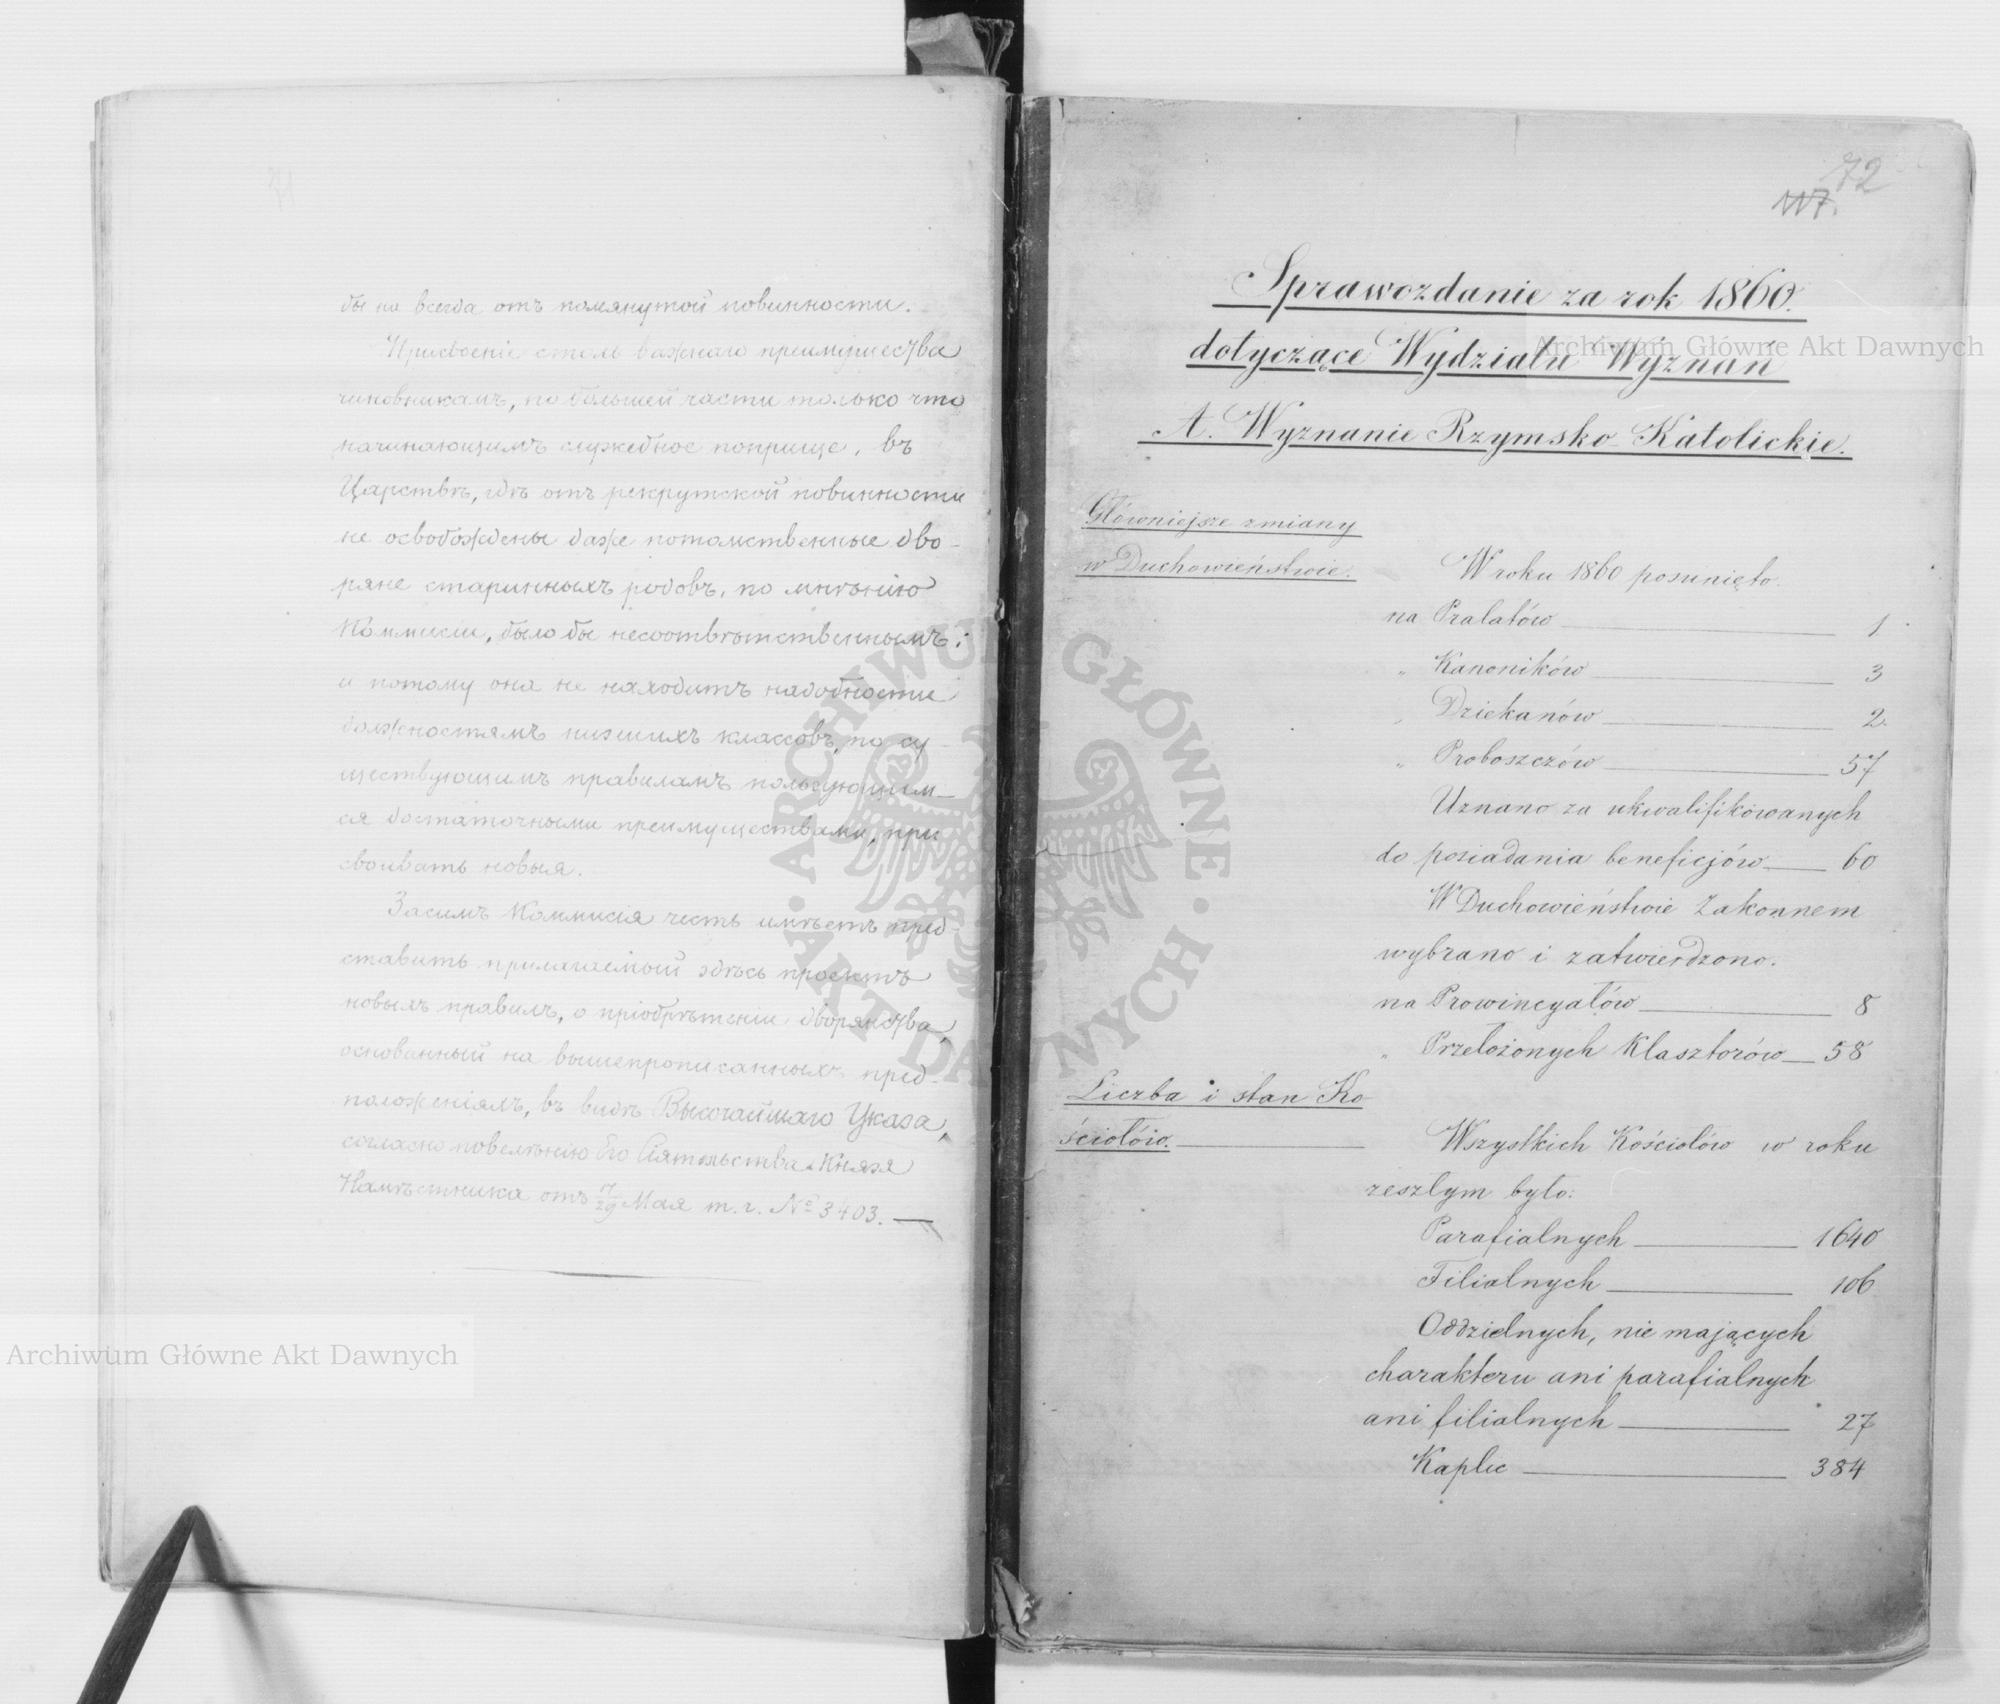 бы на всегда отъ помянутой повинности.
Присвоеніе столь важнаго преимущества
чиновникамъ, по большей части только что
начинающимъ служебное поприще, въ
Царствѣ, гдѣ отъ рекрутской повинности
не освобождены даже потомственные дво-
ряне старинныхъ родовъ, по мнѣнію
Коммисіи, было бы несоотвѣтственнымъ;
и потому она не находитъ надобности
должностямъ низшихъ классовъ, по су-
ществующимъ правиламъ пользующим-
ся достаточными преимуществами, при
своивать новыя.
Засимъ Коммисія честь имѣетъ пред-
ставить прилагаемый здѣсь проектъ
новыхъ правилъ, о пріобрѣтеніи дворянства,
основанный на вышепрописанныхъ пред-
положеніяхъ, въ видѣ Высочайшаго Указа,
согласно повелѣнію Его Сіятельства Князя
Намѣстника отъ 17/29 Мая т. г. № 3403.
72
117.
Sprawozdanie za rok 1860.
dotyczące Wydziału Wyznań
A. Wyznanie Rzymsko Katolickie.
Główniejsze zmiany
w Duchowieństwie.
W roku 1860 posunięto.
na Prałatów 1
„ Kanoników 3
„ Dziekanów 2.
„ Proboszczów 57
Uznano za ukwalifikowanych
do posiadania beneficjów 60
W Duchowieństwie Zakonnem
wybrano i zatwierdzono.
na Prowincyałów 8
„ Przełożonych Klasztorów 58
Liczba i stan Ko
ściołów.
Wszystkich Kościołów w roku
zeszłym było:
Parafialnych 1640
Filialnych 106
Oddzielnych, nie mających
charakteru ani parafialnych
ani filialnych 27
Kaplic 384
Archiwum Główne Akt Dawnych
Archiwum Główne Akt Dawnych
ARCHIWUM GŁÓWNE · AKT DAWNYCH ·